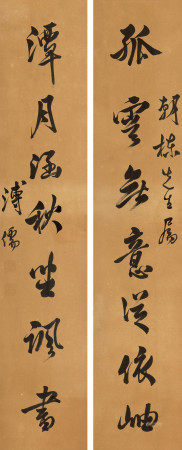 孤雲無意從依岫
朝棟先生屬
潭月涵秋坐諷書
溥儒